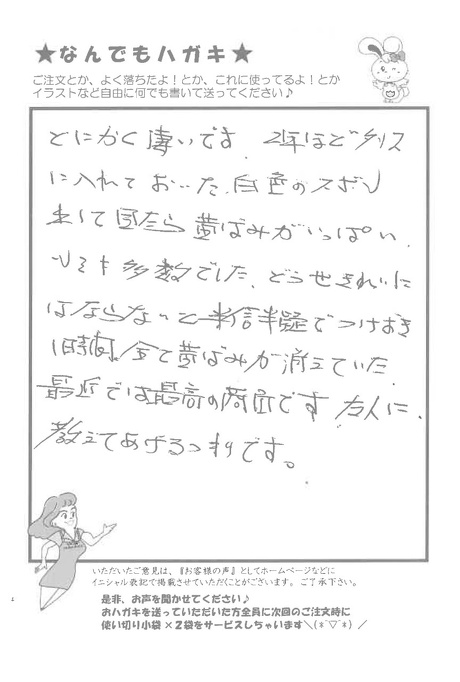 ★なんでもハガキ★
ご注文とか、よく落ちたよ！とか、これに使ってるよ！とか
イラストなど自由に何でも書いて送ってください♪
とにかく凄いです。2年ほどタンス
に入れておいた、白色のズボン
出して見たら黄ばみがいっぱい、
シミも多数でした、どうせきれいに
はならないと半信半疑でつけおき
1時間、全て黄ばみが消えていた
最近では最高の商品です 友人に、
教えてあげるつもりです。
いただいたご意見は、『お客様の声』としてホームページなどに
イニシャル表記で掲載させていただくことがございます。ご了承下さい。
是非、お声を聞かせてください♪
おハガキを送っていただいた方全員に次回のご注文時に
使い切り小袋×2袋をサービスしちゃいます＼(*´▽`*)／